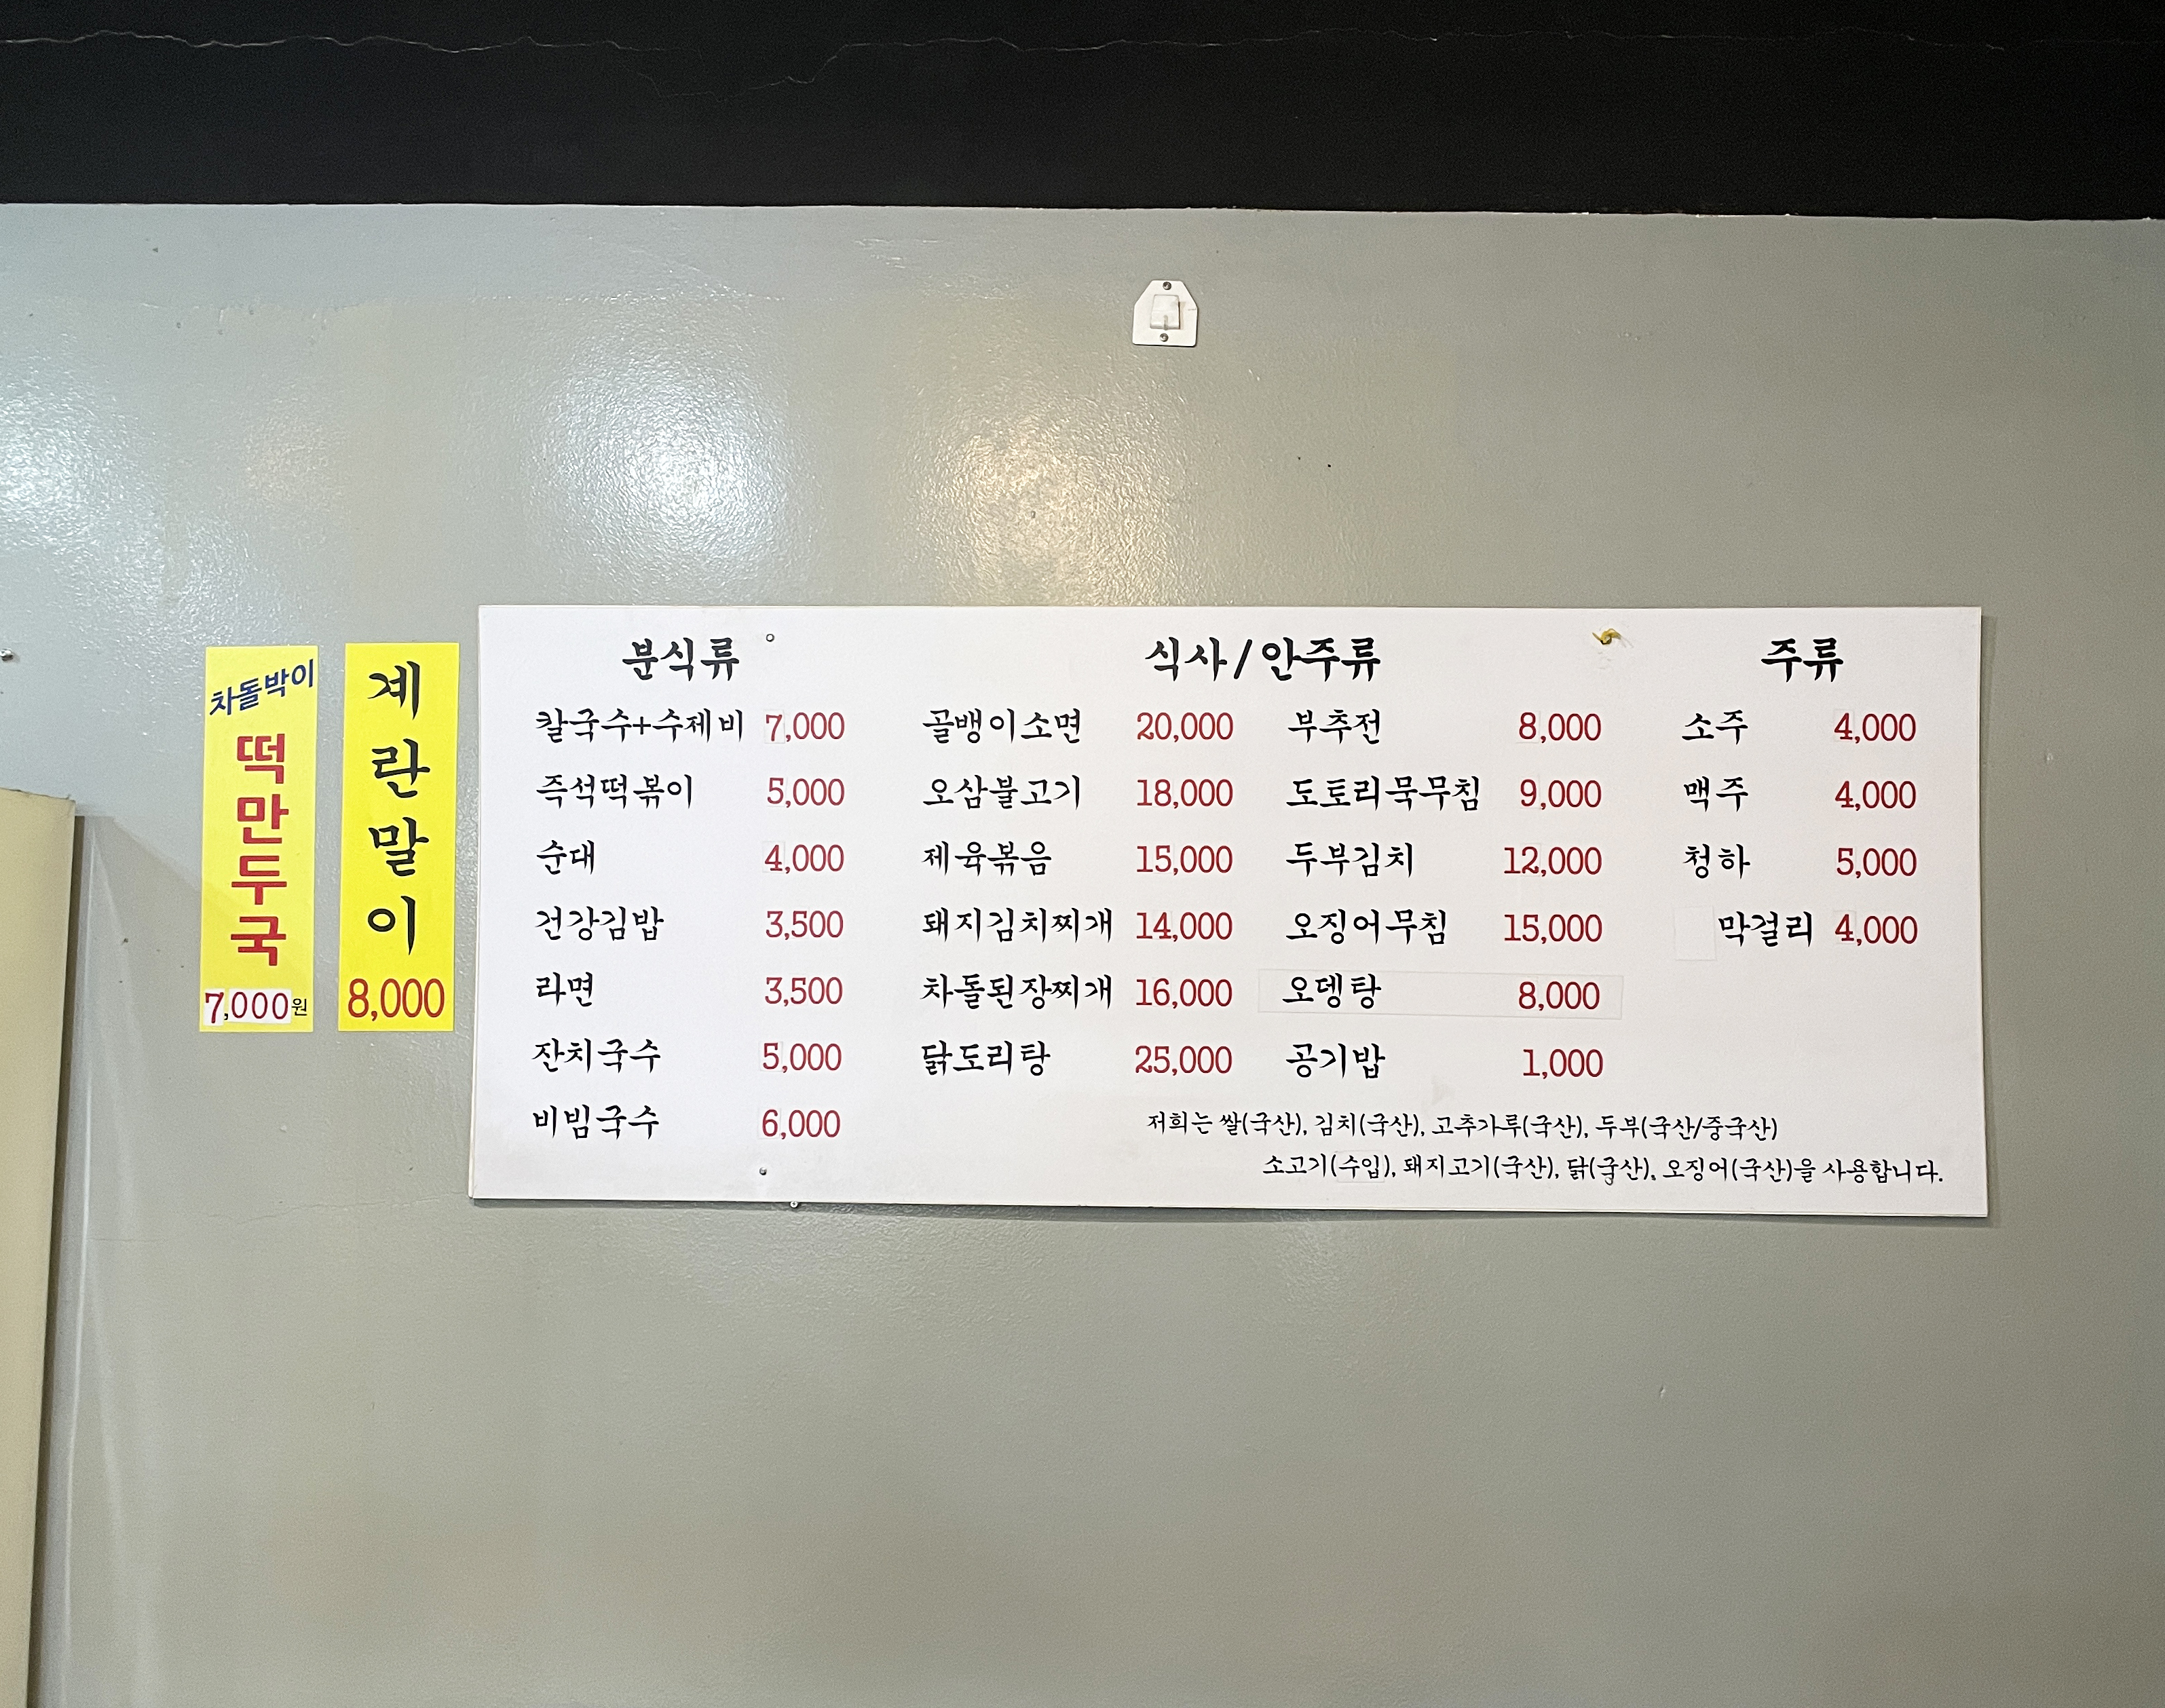 차돌박이
떡만두국
7,000원
계란말이
8,000
분식류
칼국수+수제비 7,000
즉석떡볶이 5,000
순대 4,000
건강김밥 3,500
라면 3,500
잔치국수 5,000
비빔국수 6,000
식사/안주류
골뱅이소면 20,000
오삼불고기 18,000
제육볶음 15,000
돼지김치찌개 14,000
차돌된장찌개 16,000
닭도리탕 25,000
부추전 8,000
도토리묵무침 9,000
두부김치 12,000
오징어무침 15,000
오뎅탕 8,000
공기밥 1,000
주류
소주 4,000
맥주 4,000
청하 5,000
막걸리 4,000
저희는 쌀(국산), 김치(국산), 고추가루(국산), 두부(국산/중국산)
소고기(수입), 돼지고기(국산), 닭(국산), 오징어(국산)을 사용합니다.